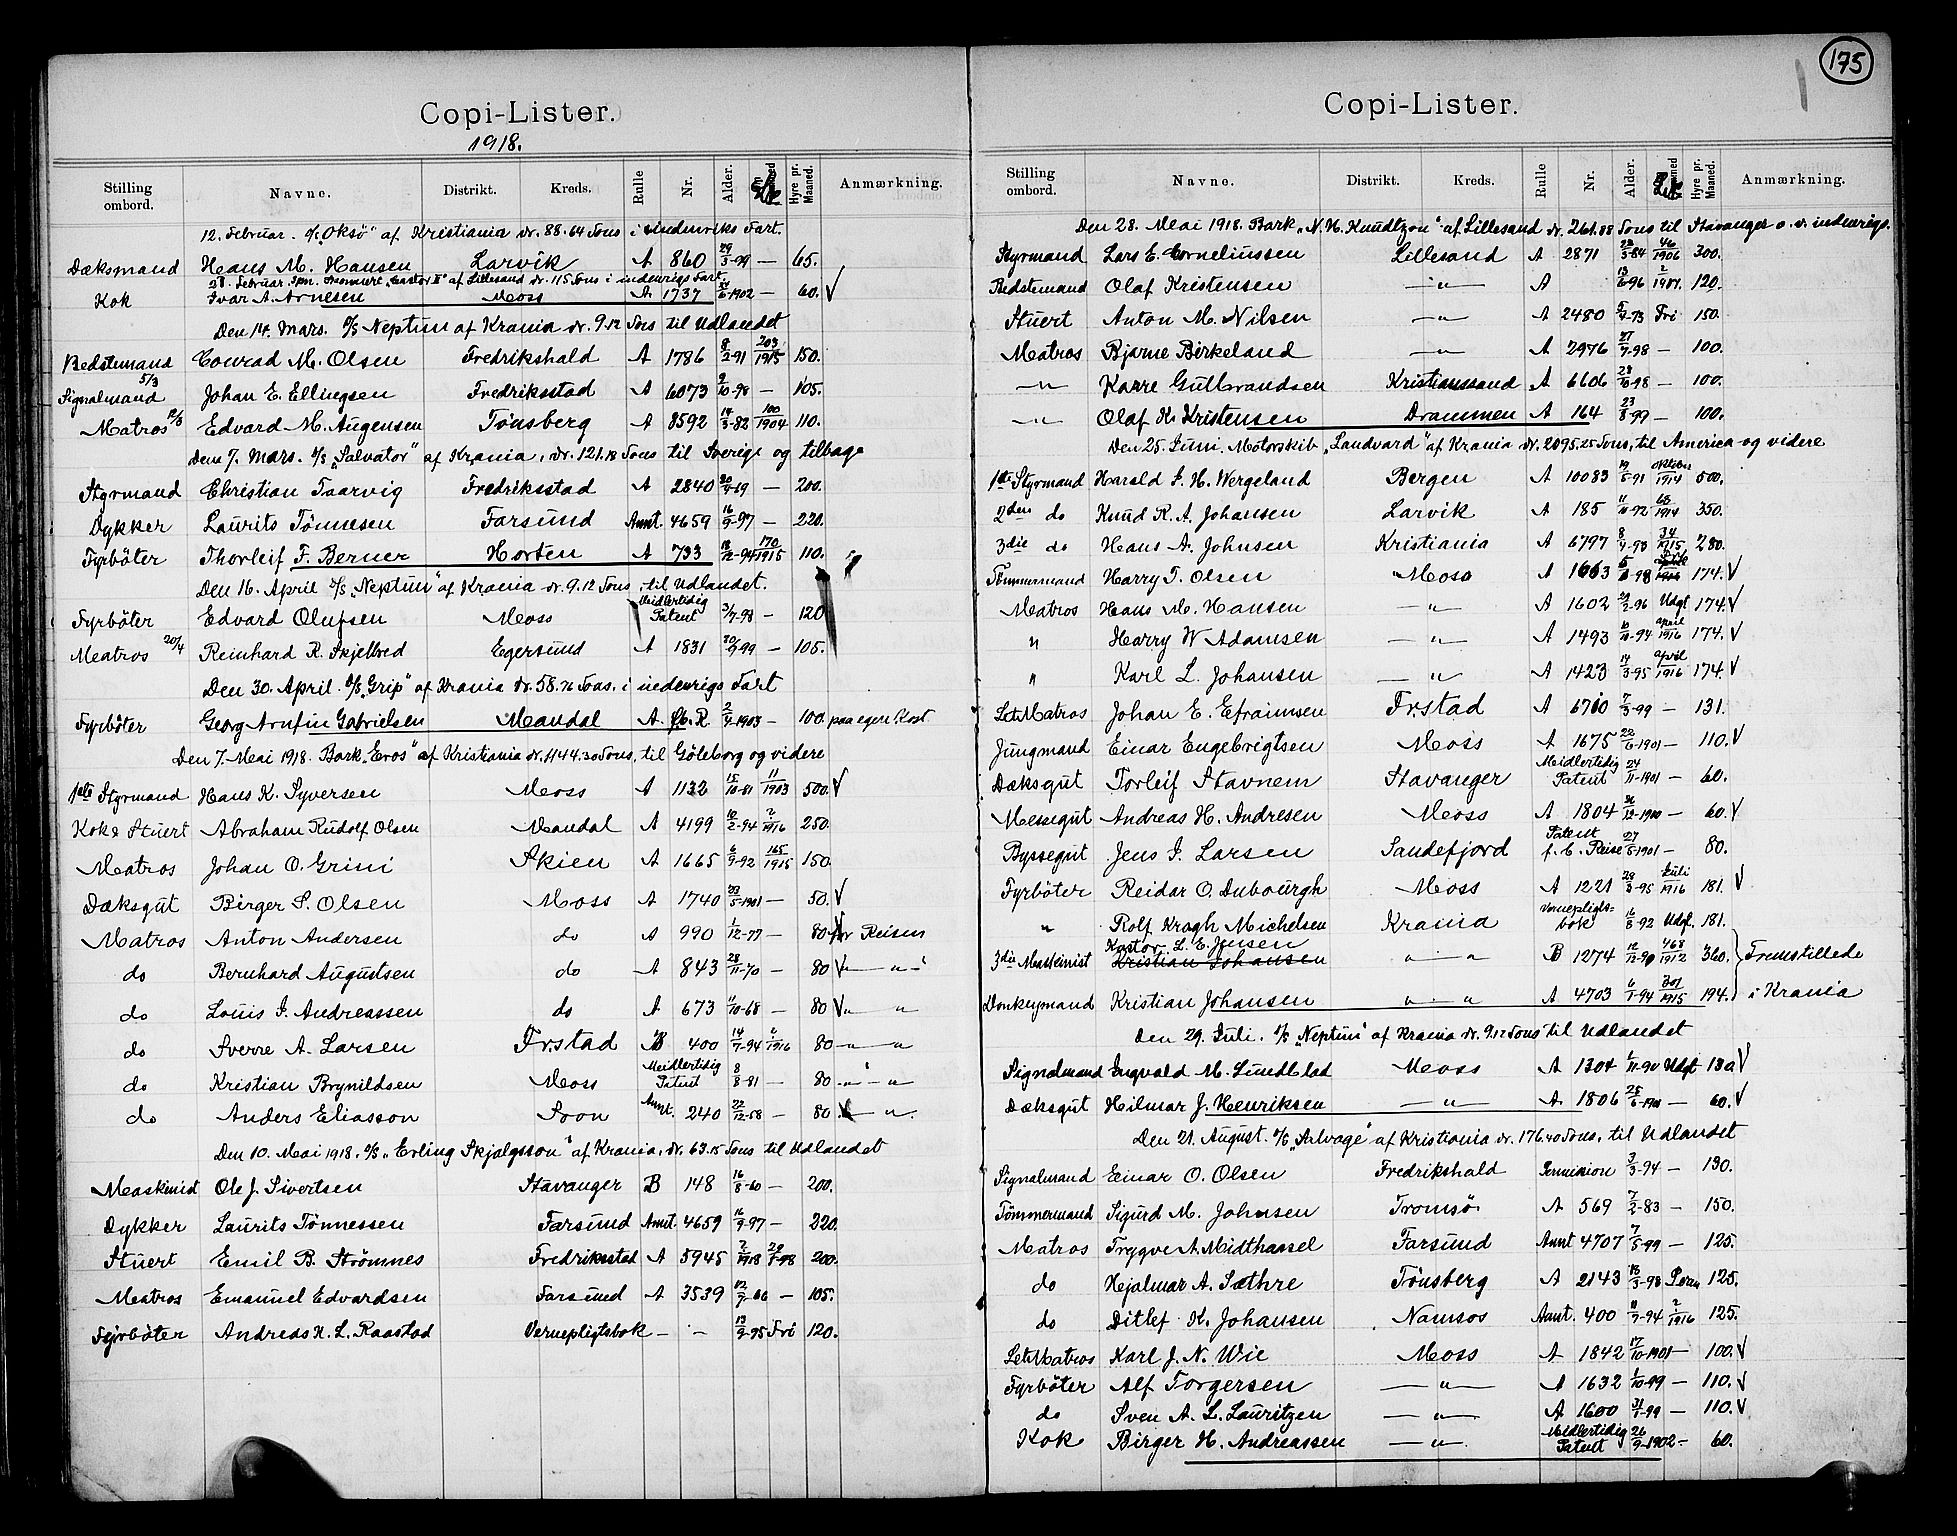 175
Copi-Lister.
1918.
Stilling ombord. Navne. Distrikt. Kreds. Rulle Nr. Alder. Hyre pr. Maaned. Anmærkning.
12. Februar. "Oksö" af Kristiania dr. 88.64 Tons i indenriks Fart.
Dæksmand Hans M. Hansen Larvik A 860 29/3-99 — 65.
28. Februar Spn. "Castor II" af Lillesand dr. 115 Tons i indenrigs Fart.
Kok Ivar A. Arnesen Moss A 1737 6-1902 — 60. V
Den 14. Mars. D/S Neptun af Krania dr. 9.12 Tons til Udlandet
Bedstemand Conrad M. Olsen Fredrikshald A 1786 8/2-91 203/1915 150.
5/3
Signalmand Johan E. Ellingsen Fredriksstad A 6073 9/10-98 — 105.
Matros 12/3 Edvard M. Augensen Tönsberg A 8592 14/3-82 100/1904 110.
Den 7. Mars. D/S "Salvator" af Krania, dr. 121.18 Tons til Sverige og tilbage
Styrmand Christian Taarvig Fredriksstad A 2840 20/9-69 — 200.
Dykker Laurits Tönnesen Farsund Amt. 4659 16/9-97 — 220.
Fyrböter Thorleif F. Berner Horten A 733 18/12-94 170/1915 110.
Den 16. April D/S "Neptun" af Krania dr. 9.12 Tons, til Udlandet.
Fyrböter Edvard Olufsen Moss Meidlertidig Patent 3/7-98 — 120
Matros 20/4 Reinhard R. Skjelbred Egersund A 1831 20/9-99 — 105.
Den 30. April. D/S "Grip" af Krania dr. 58.76 Tons. i indenrigs Fart
Fyrböter Georg Arnfin Gabrielsen Mandal A. 2/9-1903 — 100. paa egen Kost
Den 7. Mai 1918. Bark "Eros" af Kristiania dr. 1144.30 Tons, til Göteborg og videre
1ste Styrmand Hans K. Syversen Moss A 1132 15/10-81 11/1903 500. V
Kok & Stuert Abraham Rudolf Olsen Mandal A 4199 10/2-94 2/1916 250.
Matros Johan O. Grini Skien A 1665 6/9-92 165/1915 150.
Dæksgut Birger S. Olsen Moss A 1740 23/5-1901 — 50. V
Matros Anton Andersen do A 990 1/12-77 — 80 for Reisen
do Bernhard Augustsen do A 843 28/11-70 — 80 V — " —
do Louis J. Andreassen do A 673 11/10-68 — 80 V — "
do Sverre A. Larsen Frstad B 400 14/7-94 6/1916 80 — " — "
do Kristian Brynildsen Moss Meidlertidig Patent 8/8-81 — 80 — " — "
do Anders Eliasson Soon Amt. 240 22/12-58 — 80 — "
Den 10. Mai 1918. D/S "Erling Skjalgsson" af Krania, dr. 63.15 Tons til Udlandet
Maskinist Ole J. Sivertsen Stavanger B 148 16/8-60 — 200.
Dykker Laurits Tönnessen Farsund Amt. 4659 16/9-97 — 220.
Stuert Emil B. Strömnes Fredriksstad A 5945 2/1918 29/8-98 200.
Matros Emanuel Edvardsen Farsund A 3539 12/7-66 — 105.
Fyrböter Andreas H. L. Raastad Vernepligtsbok — — 13/9-95 Fri 120.
Copi-Lister.
Stilling ombord. Navne. Distrikt. Kreds. Rulle Nr. Alder. Hyre pr. Maaned. Anmærkning.
Den 28. Mai 1918. Bark "N. H. Knudtzon" af Lillesand dr. 261.88 Tons til Stavanger o. v. indenrigs.
Styrmand Lars E. Corneliussen Lillesand A 2871 22/3-84 46/1906 300.
Bedstemand Olaf Kristensen — " — A 13/6-96 2/1917. 120.
Stuert Anton M. Nilsen — " — A 2480 5/9-73 Fri 150.
Matros Bjarne Birkeland — " — A 2976 27/7-98 — 100.
— " — Kaare Gulbrandsen Kristianssand A 6606 28/10-98 — 100.
— " — Olaf K. Kristensen Drammen A 164 23/8-99 — 100.
Den 25. Juni. Motorskib "Landvard" af Krania dr. 2095.25 Tons, til America og videre
1ste Styrmand Harald J. H. Wergeland Bergen A 10083 19/5-91 oktbr 1914 500.
2den do Knud R. A. Johansen Larvik A 185 11/11-92 65/1914 350.
3die do Hans A. Johnsen Kristiania A 6797 8/9-93 34/1915 280.
Tömmermand Harry T. Olsen Moss A 1663 98 174. V
Matros Hans M. Hansen — " — A 1602 29/2-96 Udgt 174. V
" Harry W Adamsen — " — A 1493 10/10-94 April 1916 174. V
" Karl L. Johansen — " — A 1423 14/3-95 April 1916 174. V
LetMatros Johan E. Efraimsen Frstad A 6710 7/3-99 — 131.
Jungmand Einar Engebrigtsen Moss A 1675 22/6-1901 — 110. V
Dæksgut Torleif Stavnem Stavanger Meidlertidig Patent 24/11-1901 — 60.
Messegut Andreas H. Andresen Moss A 1804 31/12-1900 — 60. V
Byssegut Jens J. Larsen Sandefjord Patent f. C. Reise 27/8-1901 — 80.
Fyrböter Reidar O. Dubourgh Moss A 1221 29/8-95 Juli 1916 181. V
" Rolf Kragh Michelsen Krania Vernepligts-bok 16/8-92 Udgt. 181.
3die Maskinist Kastor L. E. Jensen Kristian Johansen " — " B 1274 12/12-90 468/1912 360. } Fremstillede
Donkeymand Kristian Johansen " — " A 4703 11/1-94 301/1915 194. i Krania
Den 29. Juli. D/S "Neptun" af Krania dr. 9.12 Tons til Udlandet
Signalmand Ingvald M. Lundblad Moss A 1304 6/11-90 Udgt 130 V
Dæksgut Hilmar J. Henriksen — " — A. 1806 25/6-1901 — 60. V
Den 21. August. D/S "Artvage" af Kristiania dr. 176.40 Tons, til Udlandet
Signalmand Einar O. Olsen Fredrikshald Permission 3/3-94 — 130.
Tömmermand Sigurd M. Johnsen Tromsö A 569 7/2-83 — 150.
Matros Trygve A. Midthassel Farsund Amt 4707 7/5-99 — 125.
do Hjalmar A. Sæthre Tönsberg A 2143 18/3-98 125.
do Ditlef K. Johansen Namsos Amt. 400 11/9-94 2/1916 125.
LetMatros Karl J. N. Wie Moss A 1842 17/10-1901 — 100. V
Fyrböter Alf Torgersen — " — A 1632 1/10-99 — 110. V
do Sven A. L. Lauritzen — " — A 1600 31/8-99 — 110. V
Kok Birger H. Andreassen — " — Meidlertidig Patent 26/9-1902 — 60.